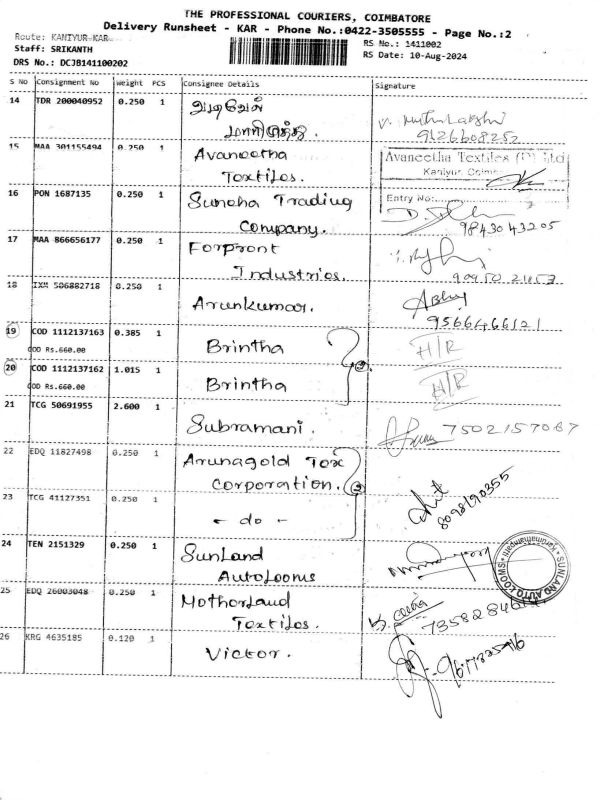 THE PROFESSIONAL COURIERS, COIMBATORE
Delivery Runsheet - KAR - Phone No.:0422-3505555 - Page No.:2
Route: KANIYUR-KAR
Staff: SRIKANTH
RS No.: 1411002
DRS No.: DCJB141100202
RS Date: 10-Aug-2024
S No Consignment No Weight PCS Consignee Details Signature
14 TDR 200040952 0.250 1
9126608252
15 MAA 301155494 0.250 1 Avaneetha
Textiles.
Avaneetha Textiles (P) Ltd
Kaniyur, Coim
Entry No:
16 PON 1687135 0.250 1 Suneha Trading
Company.
98430 43205
17 MAA 866656177 0.250 1 Forfront
Industries.
18 IXM 506882718 0.250 1 Arunkumar.
9566466121
19 COD 1112137163 0.385 1 Brintha H/R
COD Rs.660.00
20 COD 1112137162 1.015 1 Brintha H/R
COD Rs.660.00
2
21 TCG 50691955 2.600 1 Subramani. 7502157067
22 EDQ 11827498 0.250 1 Arunagold Tex
Corporation. 2
8098190355
23 TCG 41127351 0.250 1 - do -
24 TEN 2151329 0.250 1 SunLand
AutoLooms
SUNLAND AUTO LOOMS
25 EDQ 26003048 0.250 1 Motherland
Textiles.
26 KRG 4635185 0.120 1 Victor.